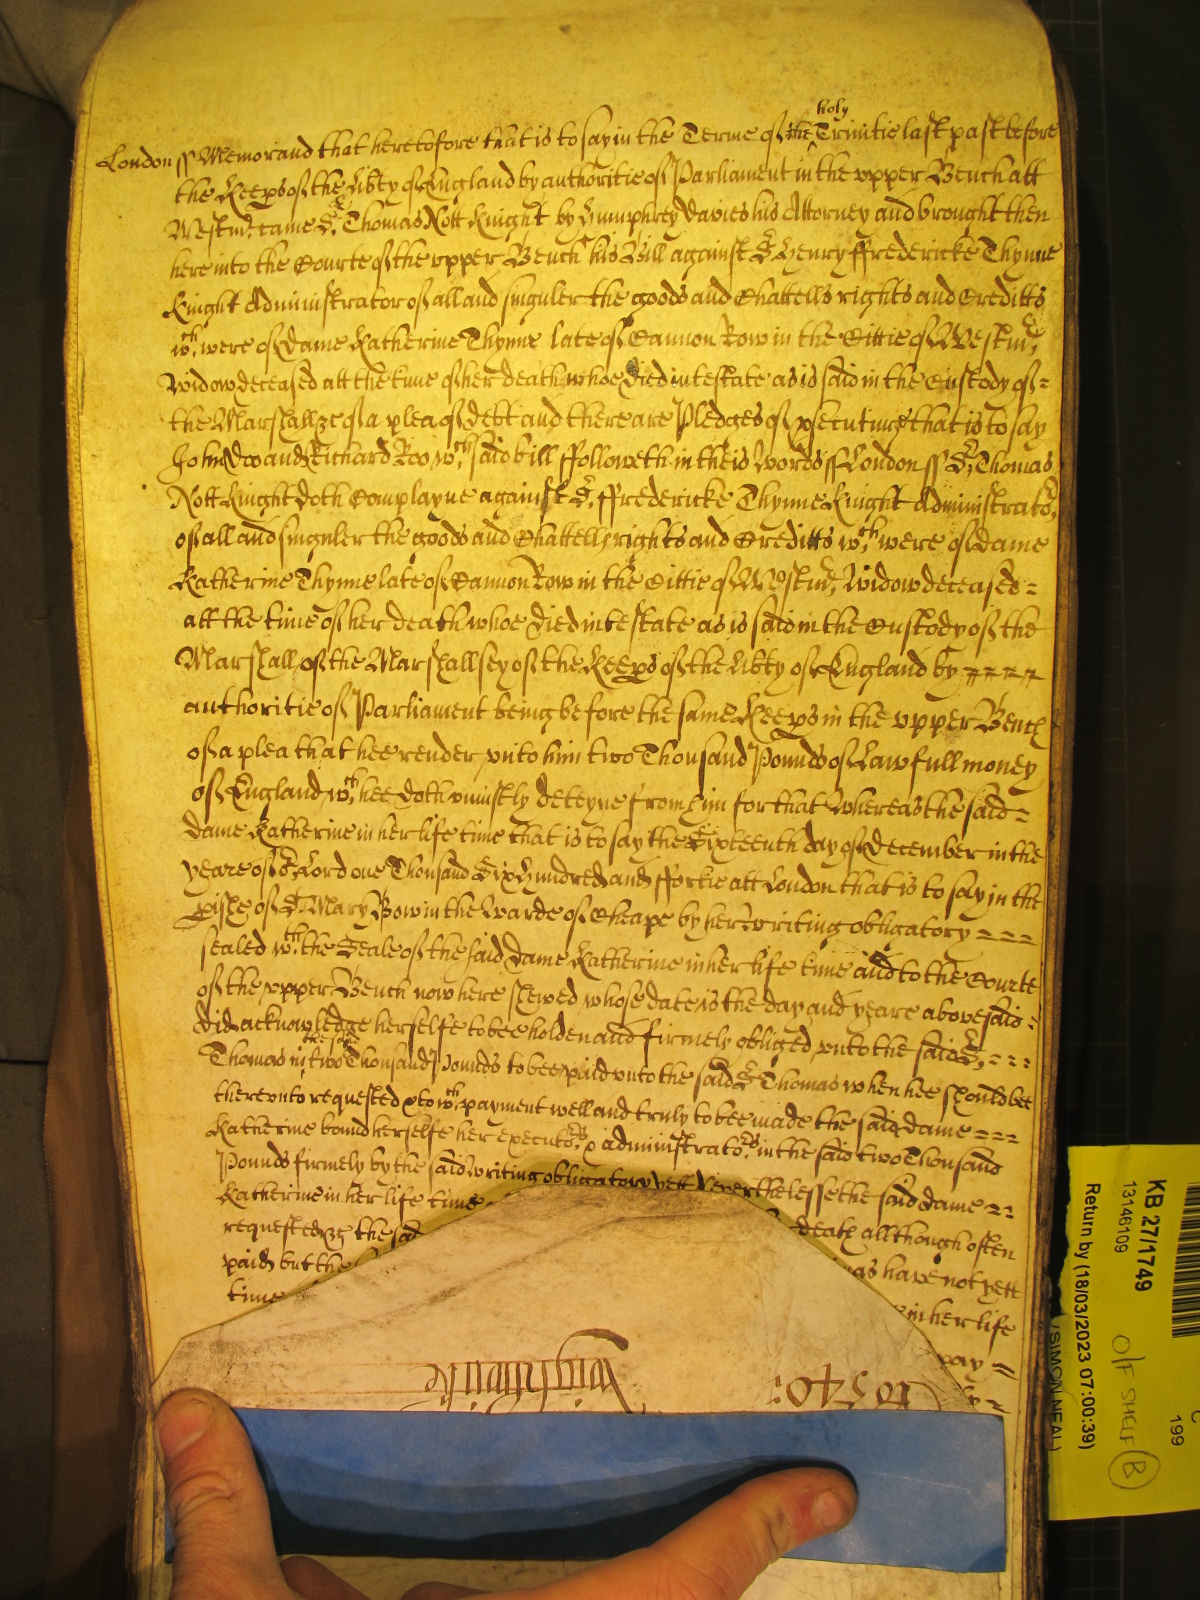 holy
London ss Memorand that heretofore that is to say in the Terme of the Trinitie last past before
the Keepers of the Libty of England by authoritie of Parliament in the upper Bench att
Westmr: came Sr. Thomas Nott Knight by Humphrey Davies his Attorney and brought then
here into the Courte of the upper Bench his Bill against Sr Henry ffredericke Thynne
Knight Administrator of all and singuler the goods and Chattells rights and Creditts
wch. were of Dame Katherine Thynne late of Cannon Row in the Cittie of Westmr,
Widow deceased att the time of her death whoe died intestate as is said in the Custody of =
the Marshall &c of a plea of debt and there are Pledges of psecuting that is to say
John Doo and Richard Roo wch. said bill ffolloweth in theis Words ss London ss Sr. Thomas
Nott Knight doth Complayne against Sr. ffredericke Thynne Knight Administrator,
of all and singuler the goods and Chattells rights and Creditts wch. were of Dame
Katherine Thynne late of Cannon Row in the Cittie of Westmr, Widow deceased =
att the time of her death whoe died intestate as is said in the Custody of the
Marshall of the Marshallsey of the Keeps of the Libty of England by = = = =
authoritie of Parliament being before the same Keeps in the upper Bench
of a plea that hee render unto him two Thousand Pounds of Lawfull money
of England wch. hee doth uniustly deteyne from him for that Whereas the said =
dame Katherine in her life time that is to say the Sixteenth day of December in the
yeare of or. Lord one Thousand Six Hundred and ffortie att London that is to say in the
pish of St. Mary Bow in the Warde of Cheape by her writing obligatory = = =
sealed wth. the Seale of the said Dame Katherine in her life time and to the Courte
of the upper Bench now here shewed whose date is the day and yeare abovesaid =
did acknowledge herselfe to bee holden and firmely obliged unto the said Sr. = = =
the said
Thomas in two Thousand Pounds to bee paid unto the said Sr Thomas when hee should bee
thereunto requested & to wch. payment well and truly to bee made the said dame = = =
Katherine bound herselfe her executors. & administrators. in the said two Thousand
Pounds firmely by the said writing obligatory yett Neverthelesse the said dame = =
Katherine in her life time death allthough often
requested &c the said as have not yett
paid but the in her life
time pay =
10340:
KB 27/1749
13146109
Return by (18/03/2023 07:00:39)
(SIMON NEAL)
O/F SHELF B
C
199